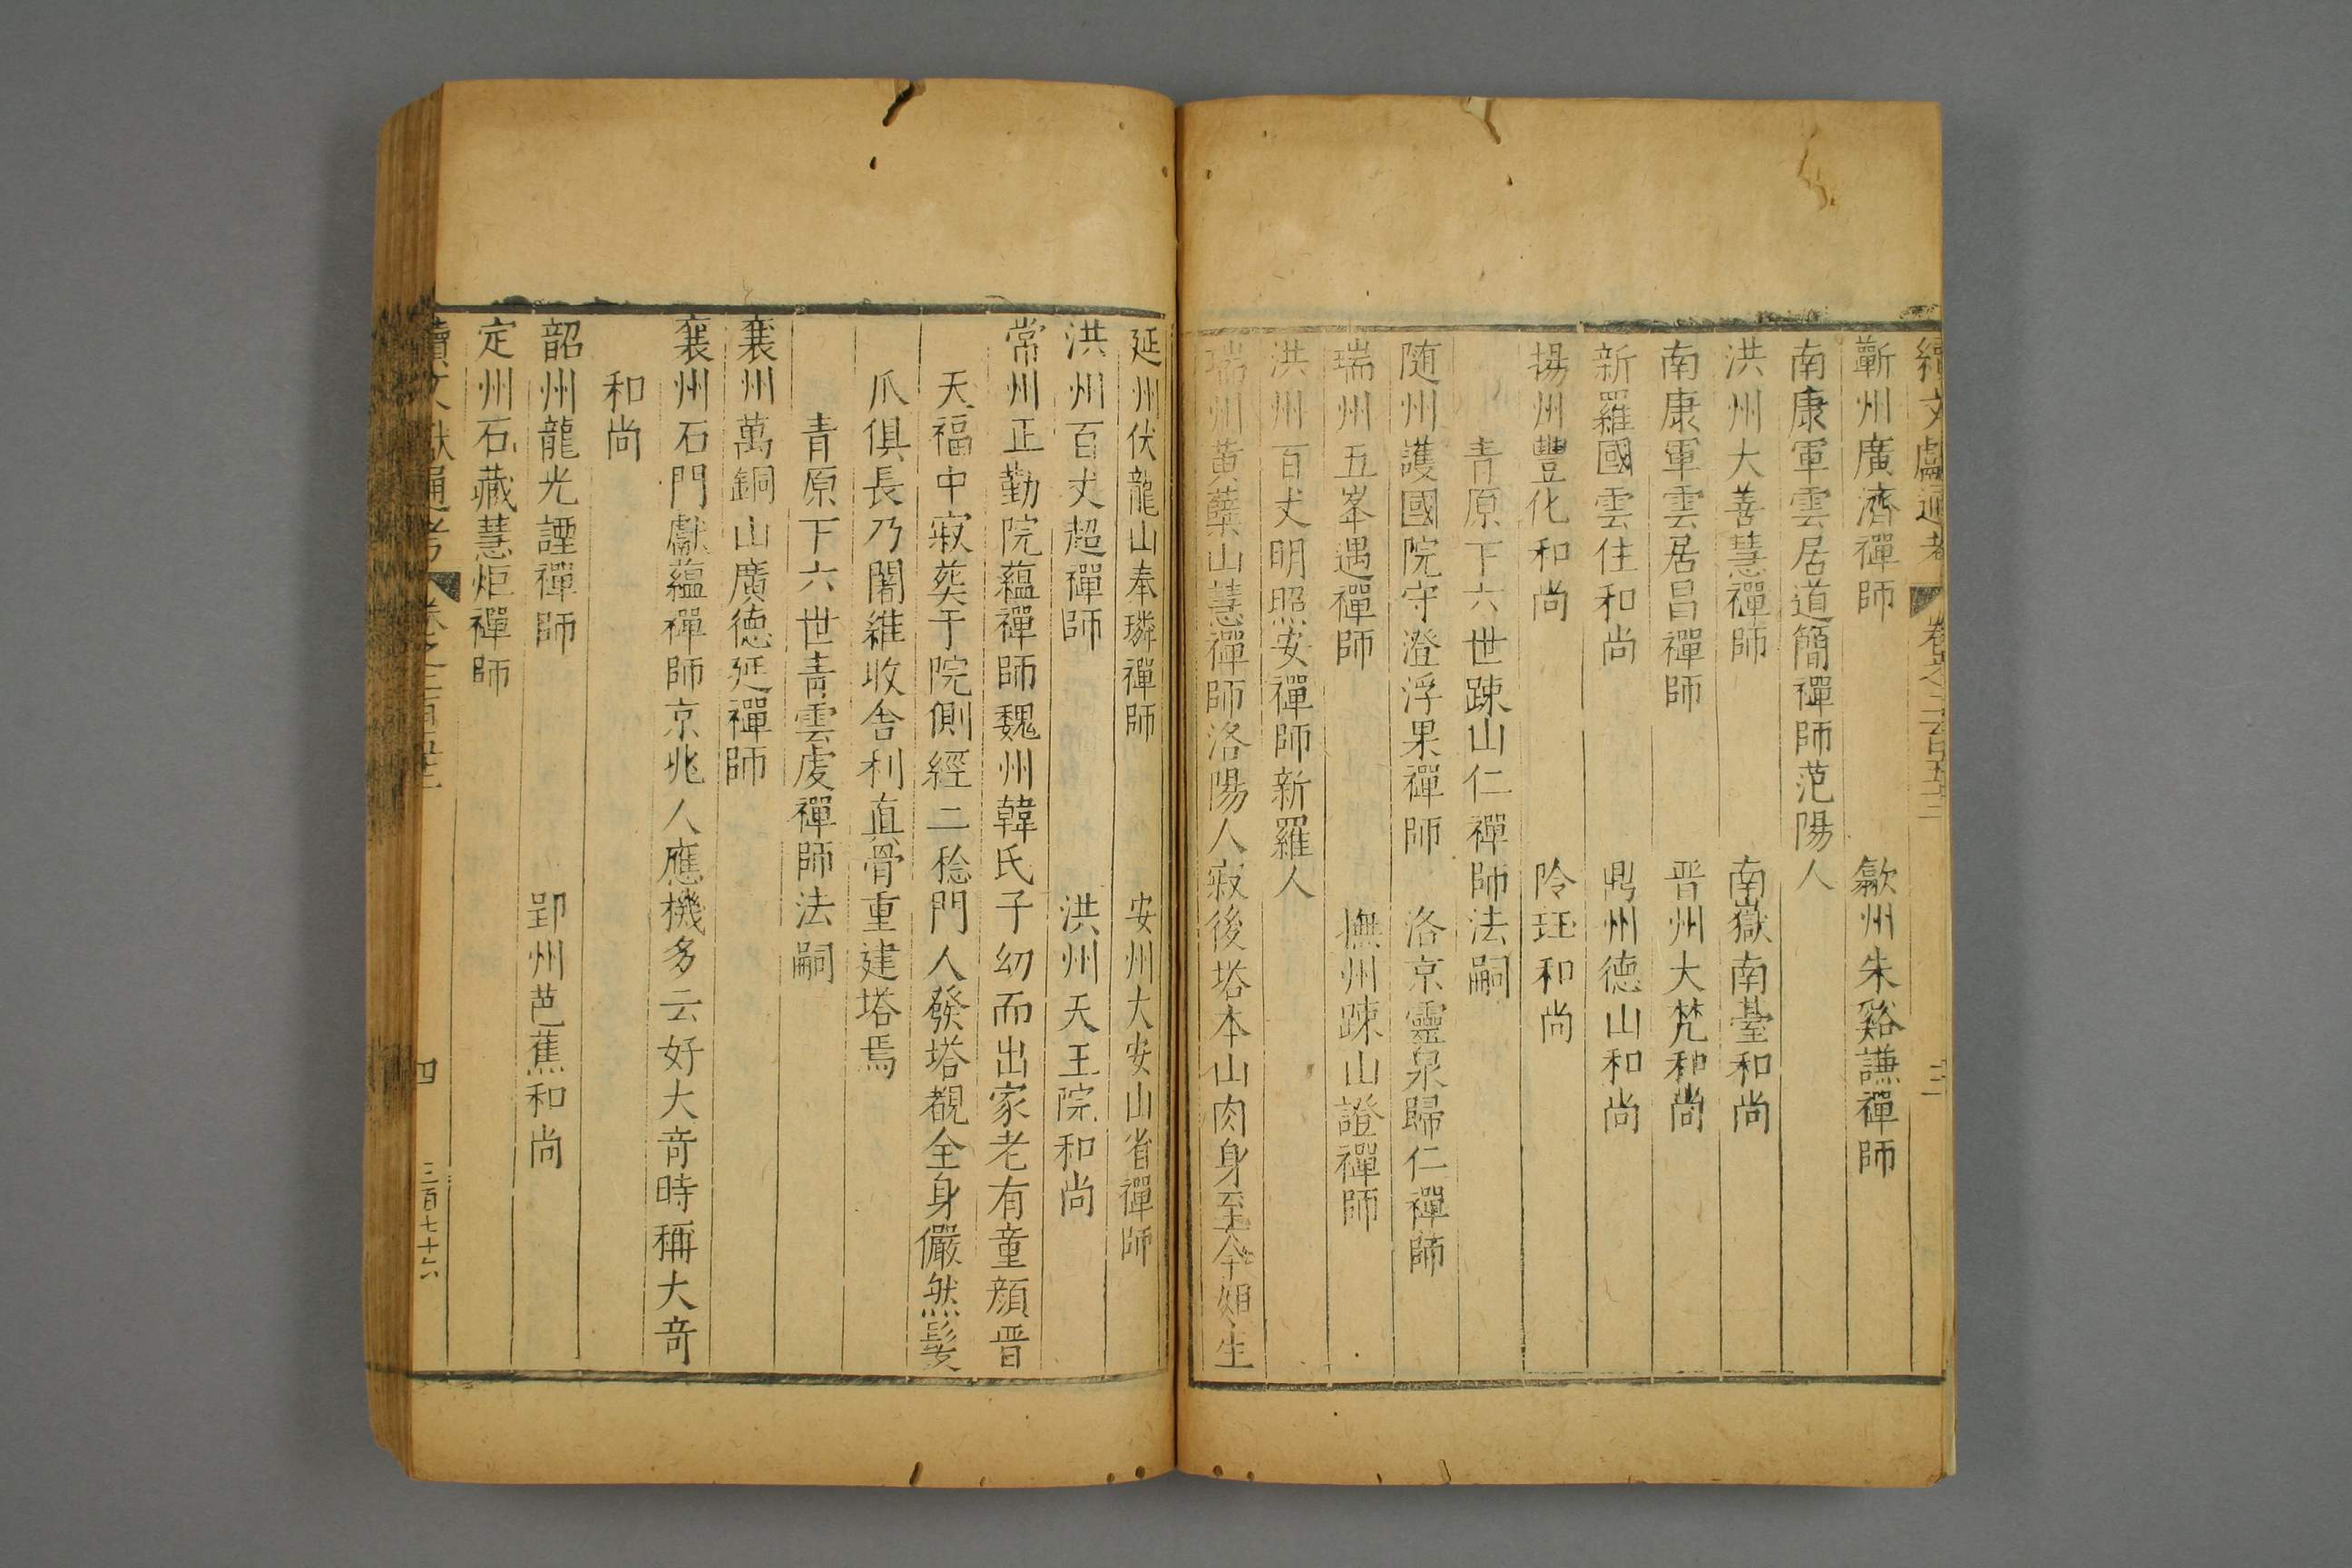 續文獻通考 卷之二百五十三 三
蘄州廣濟禪師 歙州朱谿謙禪師
南康軍雲居道簡禪師范陽人
洪州大善慧禪師 南嶽南臺和尚
南康軍雲居昌禪師 晋州大梵和尚
新羅國雲住和尚 鼎州德山和尚
揚州豐化和尚 阾珏和尚
青原下六世踈山仁禪師法嗣
随州護國院守澄浮果禪師 洛京靈泉歸仁禪師
瑞州五峯遇禪師 撫州踈山證禪師
洪州百丈明照安禪師新羅人
瑞州黃蘗山慧禪師洛陽人寂後塔本山肉身至今如生
延州伏龍山奉璘禪師 安州大安山省禪師
洪州百丈超禪師 洪州天王院和尚
常州正勤院蘊禪師魏州韓氏子幼而出家老有童顏晋
天福中寂葬于院側經二稔門人發塔覩全身儼然髮
爪俱長乃闍維收舍利眞骨重建塔焉
青原下六世青雲虔禪師法嗣
襄州萬銅山廣德延禪師
襄州石門獻蘊禪師京兆人應機多云好大竒時稱大竒
和尚
韶州龍光諲禪師 郢州芭蕉和尚
定州石藏慧炬禪師
續文獻通考 卷之二百 四 三百七十六